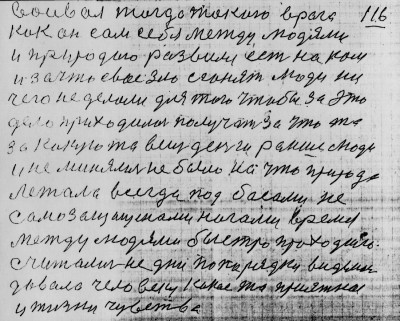 воивал тогдо токого врага 116
как он сам себя между людями
и природою развили ест на ком
и за што свае зло сгонят люди ни
чего не делали для того чтобы за это
дело приходилос получат за что та
за какую та вещ денги ранше люди
и не линялис не было на что природа
летала всегда под басами не
само защищенами ногами время
между людями быстро проходило
считали не дни по парядки
человеку какое та приятное
и жизни чувства